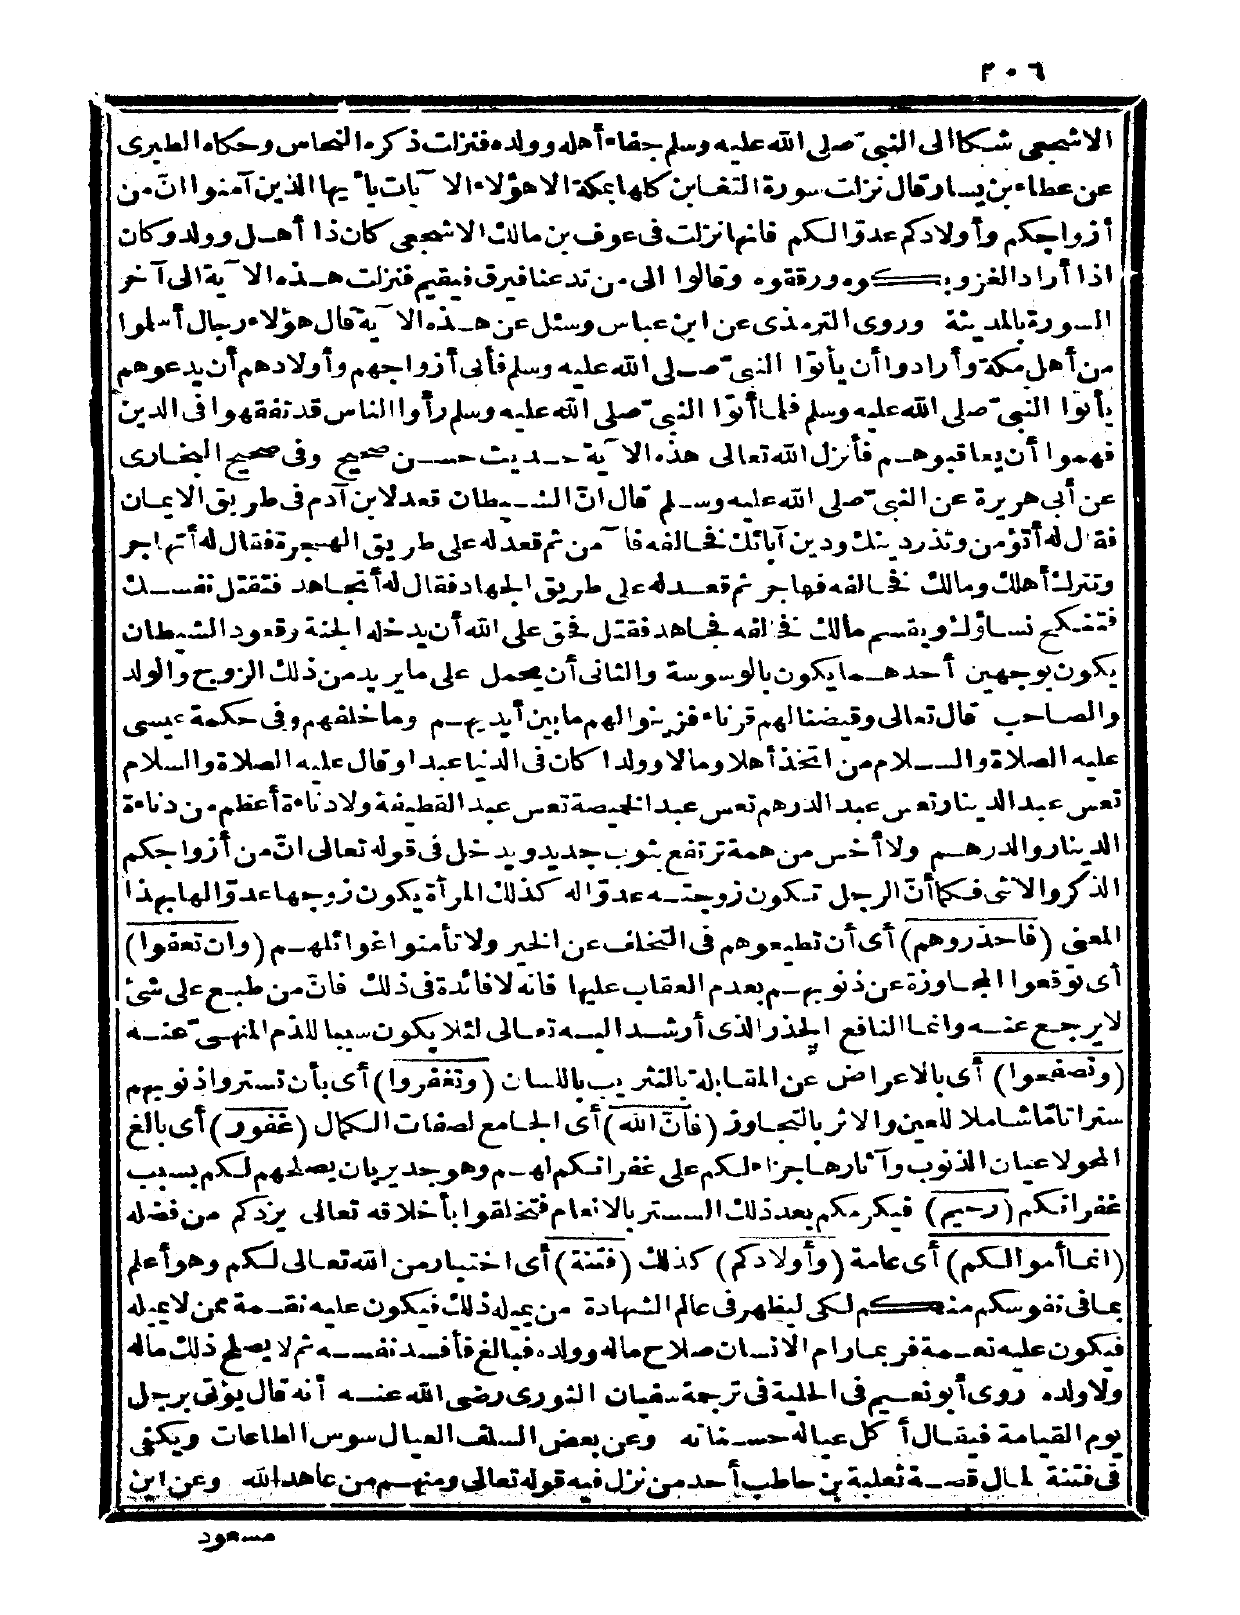 ٣٠٦
الاشجعى شكا الى النبىّ صلى الله عليه وسلم جفاء أهله وولده فنزلت ذكره النحاس وحكاه الطبرى
عن عطاء بن يسار قال نزلت سورة التغابن كلها بمكة الا هؤلاء الآيات يا أيها الذين آمنوا انّ من
أزواجكم وأولادكم عدوّا لكم فانها نزلت فى عوف بن مالك الاشجعى كان ذا أهل وولد وكان
اذا أراد الغزو بكوه ورققوه وقالوا الى من تدعنا فيرق فيقيم فنزلت هذه الآية الى آخر
السورة بالمدينة وروى الترمذى عن ابن عباس وسئل عن هذه الآية قال هؤلاء رجال أسلموا
من أهل مكة وأرادوا أن يأتوا النبىّ صلى الله عليه وسلم فأبى أزواجهم وأولادهم أن يدعوهم
يأتوا النبىّ صلى الله عليه وسلم فلما أتوا النبىّ صلى الله عليه وسلم رأوا الناس قد تفقهوا فى الدين
فهموا أن يعاقبوهم فأنزل الله تعالى هذه الآية حديث حسن صحيح وفى صحيح البخارى
عن أبى هريرة عن النبىّ صلى الله عليه وسلم قال انّ الشيطان قعد لابن آدم فى طريق الايمان
فقال له أتؤمن وتذر دينك ودين آبائك فخالفه فآمن ثم قعد له على طريق الهجرة فقال له أتهاجر
وتترك أهلك ومالك فخالفه فهاجر ثم قعد له على طريق الجهاد فقال له أتجاهد فتقتل نفسك
فتنكح نساؤك ويقسم مالك فخالفه فجاهد فقتل فحق على الله أن يدخله الجنة وقعود الشيطان
يكون بوجهين أحدهما يكون بالوسوسة والثانى أن يحمل على ما يريد من ذلك الزوج والولد
والصاحب قال تعالى وقيضنا لهم قرناء فزينوا لهم ما بين أيديهم وما خلفهم وفى حكمة عيسى
عليه الصلاة والسلام من اتخذ أهلا ومالا وولدا كان فى الدنيا عبدا وقال عليه الصلاة والسلام
تعس عبد الدينار تعس عبد الدرهم تعس عبد الخميصة تعس عبد القطيفة ولا دناءة أعظم من دناءة
الدينار والدرهم ولا أخس من همة ترتفع بثوب جديد ويدخل فى قوله تعالى انّ من أزواجكم
الذكر والانثى فكما أنّ الرجل تكون زوجته عدوّا له كذلك المرأة يكون زوجها عدوّا لها بهذا
المعنى (فاحذروهم) أى أن تطيعوهم فى التخلف عن الخير ولا تأمنوا غوائلهم (وان تعفوا)
أى توقعوا المجاوزة عن ذنوبهم بعدم العقاب عليها فانه لا فائدة فى ذلك فانّ من طبع على شئ
لا يرجع عنه وانما النافع الحذر الذى أرشد اليه تعالى لئلا يكون سببا للذم المنهىّ عنه
(وتصفحوا) أى بالاعراض عن المقابلة بالتثريب باللسان (وتغفروا) أى بأن تستروا ذنوبهم
سترا تامّا شاملا للعين والاثر بالتجاوز (فانّ الله) أى الجامع لصفات الكمال (غفور) أى بالغ
المحو لاعيان الذنوب وآثارها جزاء لكم على غفرانكم لهم وهو جدير بان يصلحهم لكم بسبب
غفرانكم (رحيم) فيكرمكم بعد ذلك الستر بالانعام فتخلقوا بأخلاقه تعالى يزدكم من فضله
(انما أموالكم) أى عامة (وأولادكم) كذلك (فتنة) أى اختبار من الله تعالى لكم وهو أعلم
بما فى نفوسكم منكم لكى ليظهر فى عالم الشهادة من يميله ذلك فيكون عليه نقمة ممن لا يميله
فيكون عليه نعمة فربما رام الانسان صلاح ماله وولده فبالغ فأفسد نفسه ثم لا يصلح ذلك ماله
ولا ولده روى أبو نعيم فى الحلية فى ترجمة سفيان الثورى رضى الله عنه أنه قال يؤتى برجل
يوم القيامة فيقال أكل عياله حسناته وعن بعض السلف العيال سوس الطاعات ويكفى
فى فتنة المال قصة ثعلبة بن حاطب أحد من نزل فيه قوله تعالى ومنهم من عاهد الله وعن ابن
مسعود